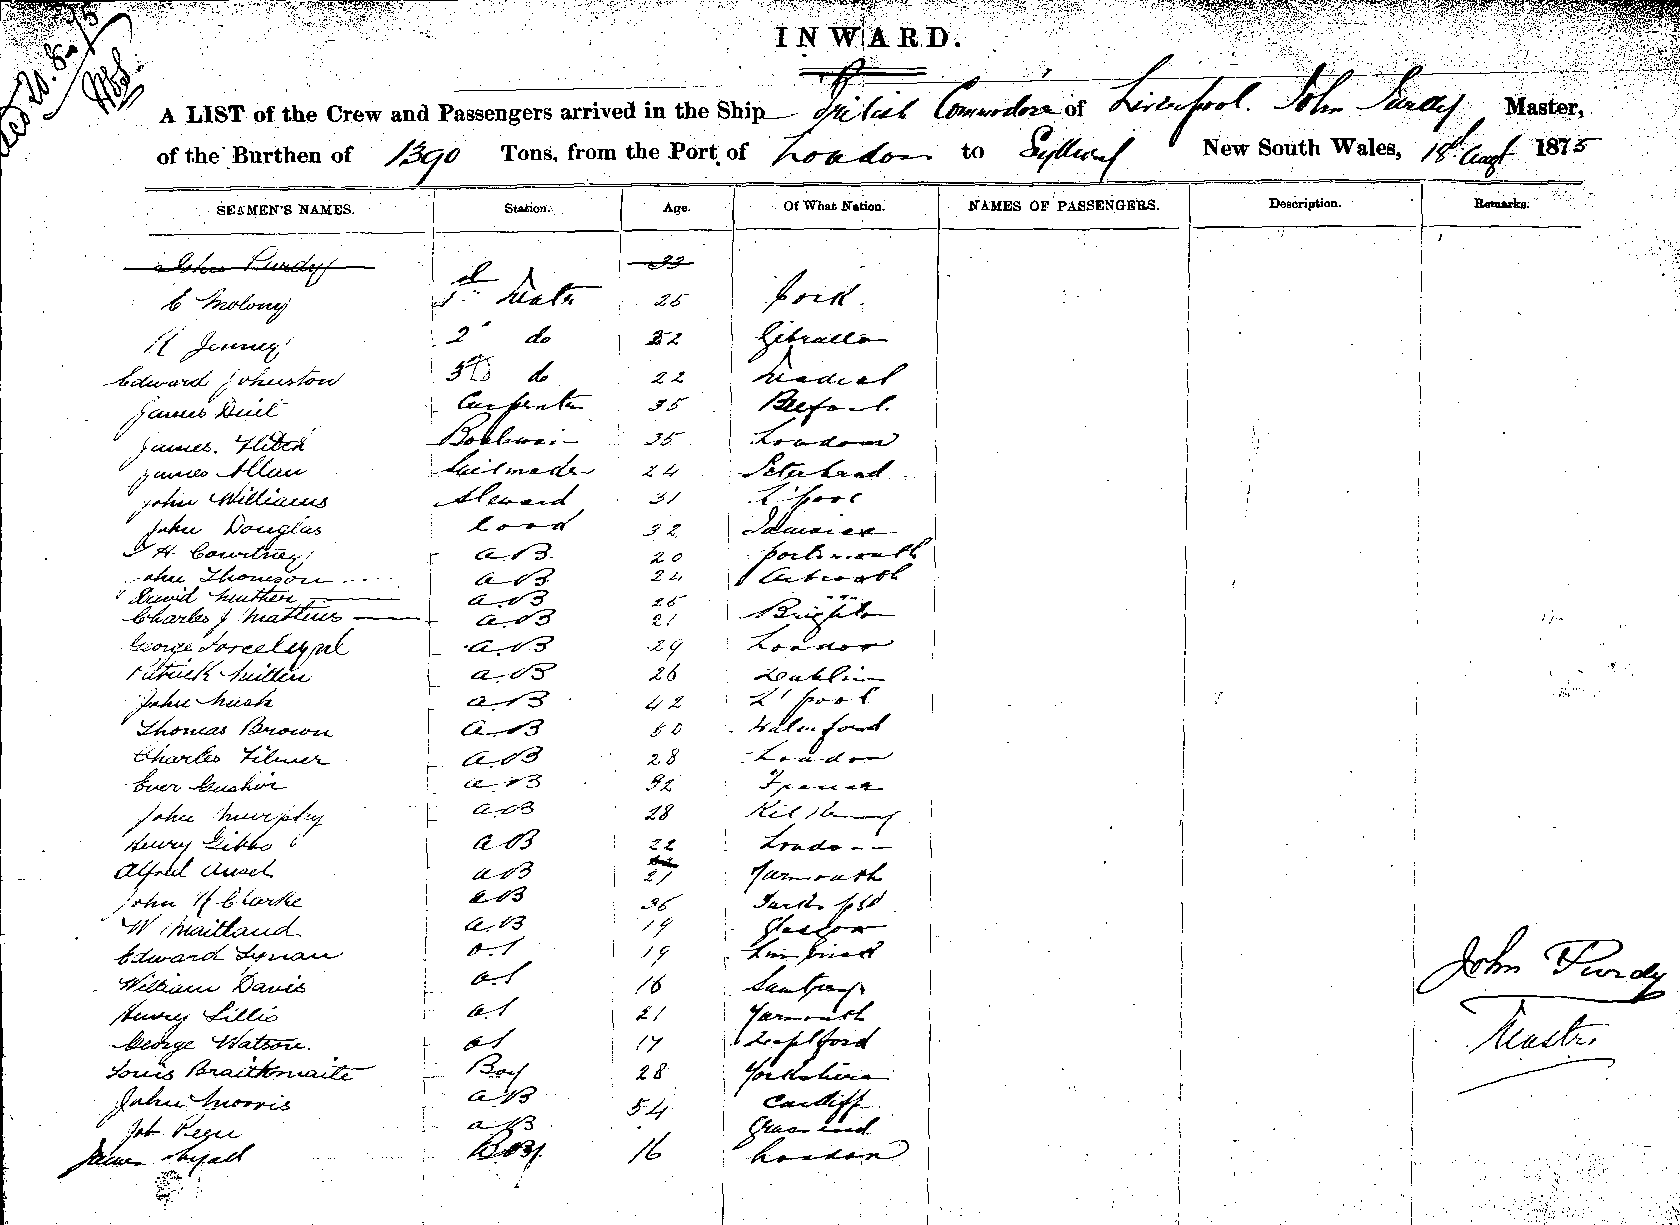 INWARD.
A LIST of the Crew and Passengers arrived in the Ship British Commodore of Liverpool. John Purdy Master,
of the Burthen of 1390 Tons, from the Port of London to Sydney New South Wales, 18th Augt 1875
SEAMEN'S NAMES. Station. Age. Of What Nation. NAMES OF PASSENGERS. Description. Remarks.
John Purdy 33
E Molony 1st Mate 25 Cork.
H Jenney 2d do 22 Gibraltar
Edward Johnston 3d do 22
James Carpenter 35 Belfast.
James 35 London
James Allan Sailmaker 24 Peterhead
John Williams Steward 31 L'pool
John Douglas Cook 32 Jamaica
H Courtney AB 20 Portsmouth
John Thomson AB 24 Arbroath
David AB 25 " " "
Charles J Mathews AB 21 Brighton
George AB 29 London
Patrick Millin AB 26 Dublin
John Nash AB 42 L'pool
Thomas Brown AB 50 Waterford
Charles Filmer AB 28 London
AB 32 France
John Murphy AB 28 Kilkenny
Henry Gibbs AB 22 London
Alfred Ansel AB 21 Yarmouth
John H Clarke AB 36
W Maitland AB 19 Glasgow
Edward Lynan OS 19 Limerick
William Davis OS 16
Henry Lillis OS 21 Yarmouth
George Watson. OS 17 Deptford
Louis Braithwaite Boy 28 Yorkshire
John Morris AB 54 Cardiff
Job AB Gravesend
James Boy 16 London
John Purdy
Master